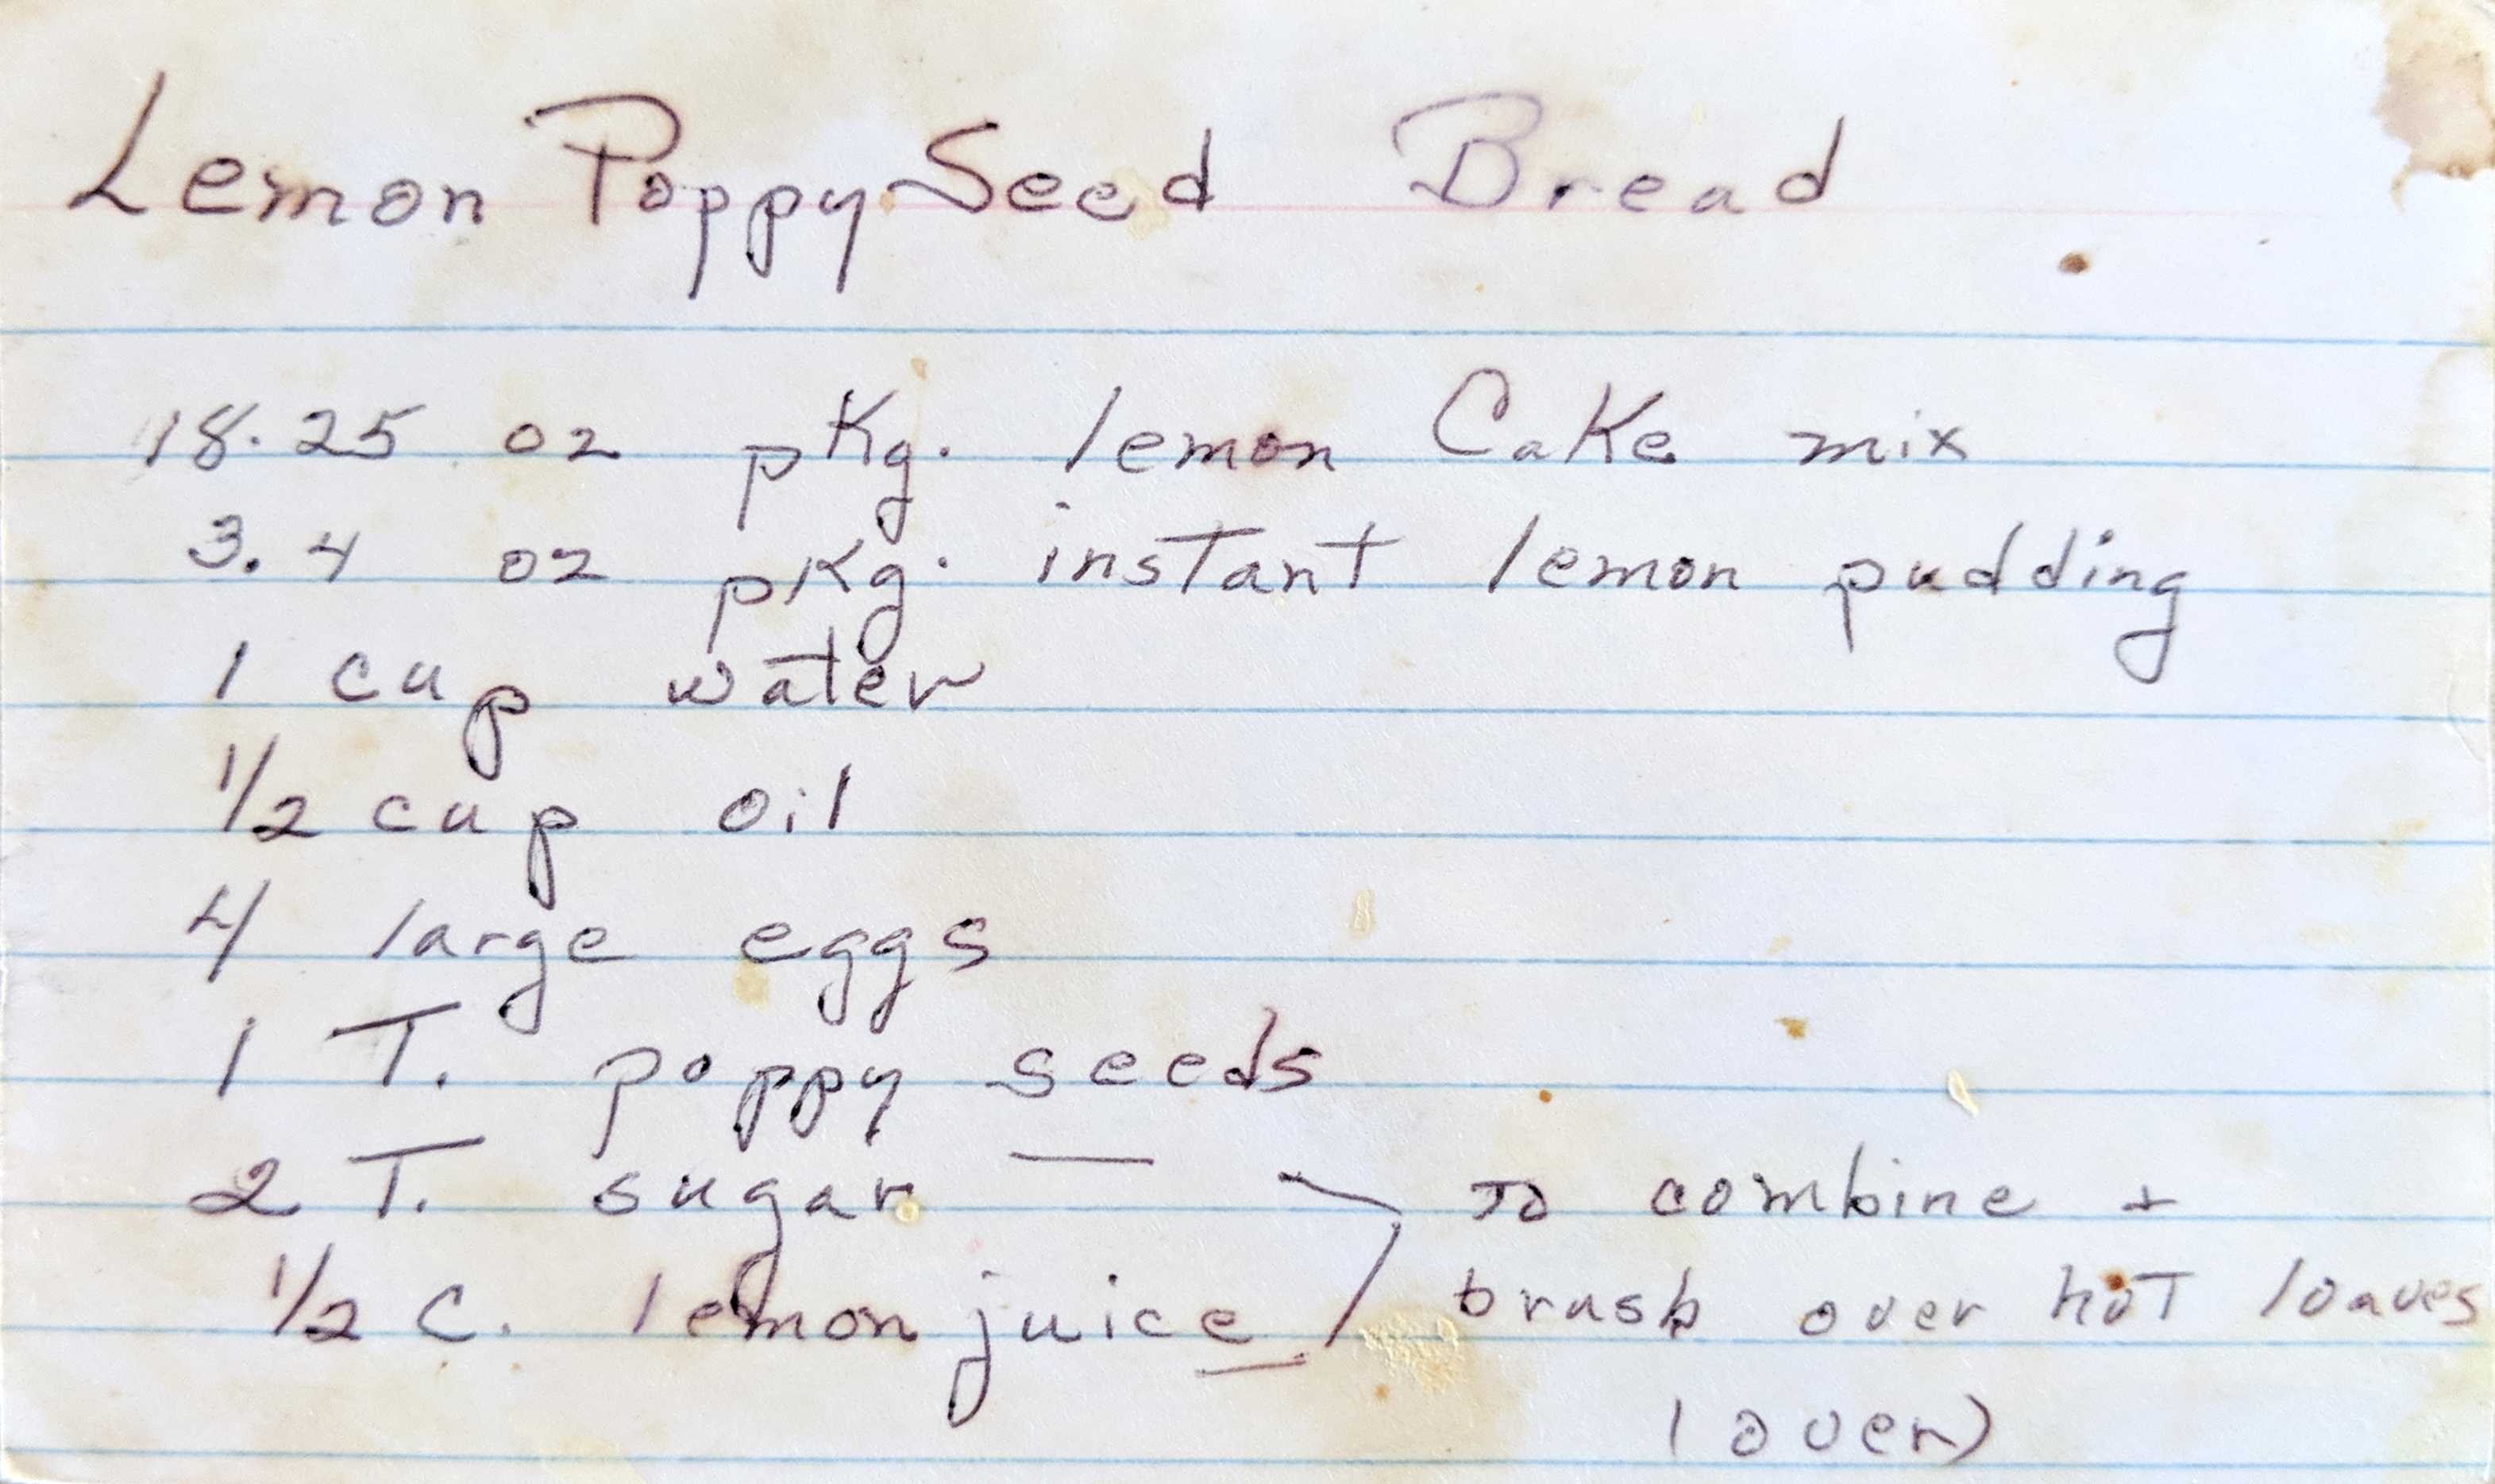 Lemon Poppy Seed Bread
18.25 oz pkg. lemon Cake mix
3.4 oz pkg. instant lemon pudding
1 cup water
1/2 cup oil
4 large eggs
1 T. poppy seeds
2 T. sugar — to combine +
1/2 C. lemon juice brush over hot loaves
(over)